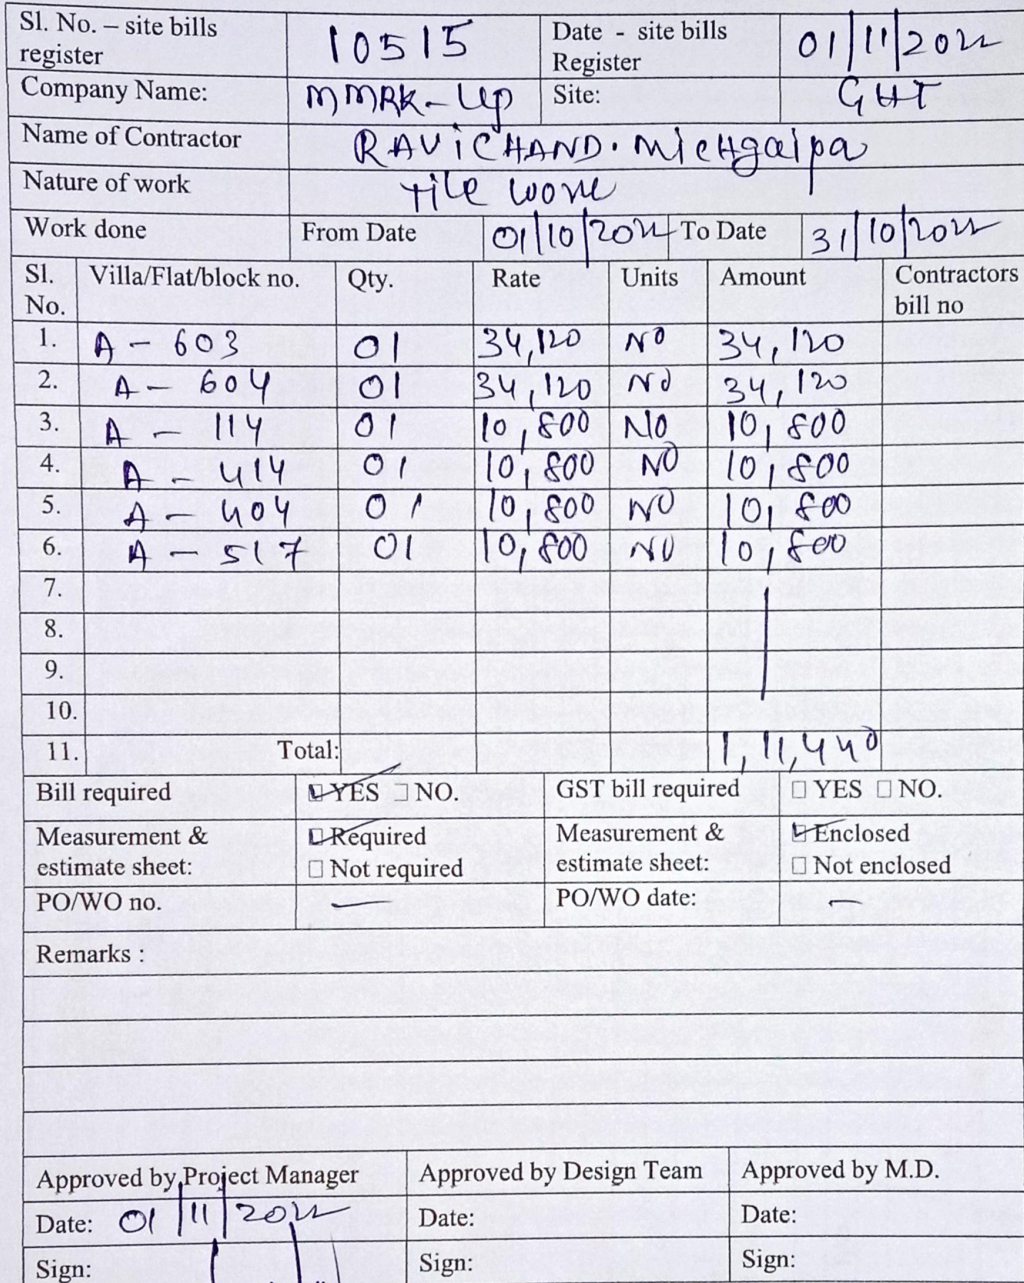 Sl. No. – site bills register 10515 Date - site bills Register 01/11/2022
Company Name: MMRK-Up Site: GHT
Name of Contractor RAViCHAND. MiCHgaipa
Nature of work Tile work
Work done From Date 01/10/2022 To Date 31/10/2022
Sl. No. Villa/Flat/block no. Qty. Rate Units Amount Contractors bill no
1. A - 603 01 34,120 NO 34,120
2. A - 604 01 34,120 NO 34,120
3. A - 114 01 10,800 NO 10,800
4. A - 414 01 10,800 NO 10,800
5. A - 404 01 10,800 NO 10,800
6. A - 517 01 10,800 NO 10,800
7.
8.
9.
10.
11. Total: 1,11,440
Bill required YES NO. GST bill required YES NO.
Measurement & estimate sheet: Required Not required Measurement & estimate sheet: Enclosed Not enclosed
PO/WO no. - PO/WO date: -
Remarks :
Approved by Project Manager Approved by Design Team Approved by M.D.
Date: 01/11/2022 Date: Date:
Sign: Sign: Sign: